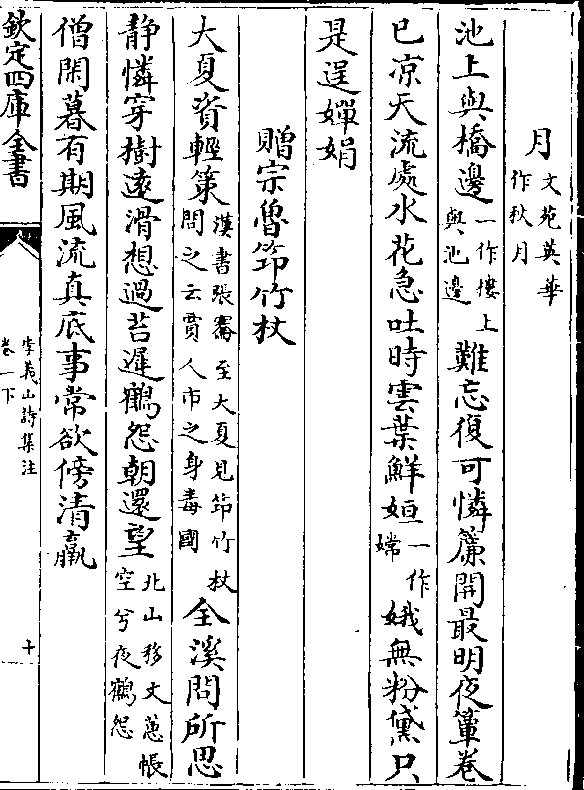 月文苑英華作秋月
池上與橋邊一作樓上與池邊難忘復可憐簾開最明夜簟卷
已凉天流處水花急吐時雲葉鮮姮一作嫦娥無粉黛只
是逞嬋娟
贈宗魯筇竹杖
大夏資輕策漢書張騫至大夏見筇竹杖問之云賈人市之身毒國全溪問所思
静憐穿樹遠滑想過苔遲鶴怨朝還望北山移文蕙帳空兮夜鶴怨
僧閑暮有期風流真底事常欲傍清羸
欽定四庫全書
李義山詩集注
卷一下
十